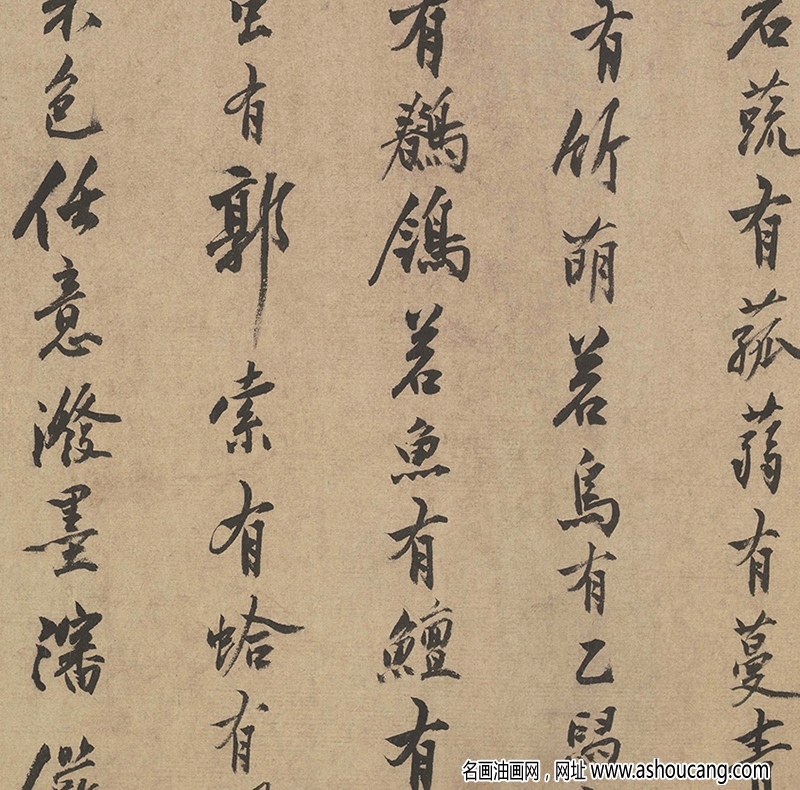 若蔬有菰蒻有蔓青
有竹萌若鳥有乙
有鶺鴒若魚有鱣有
虫有郭索有蛤有
色任意潑墨瀋
名画油画网，网址 www.ashoucang.com